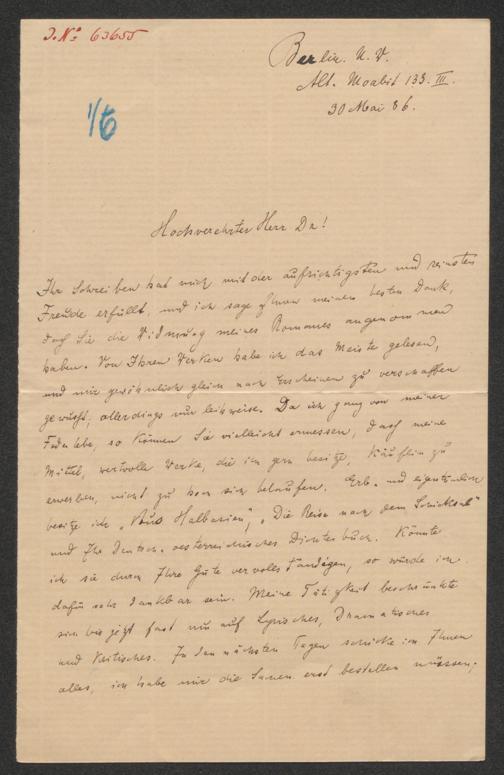 J. No 63655
Berlin. N. W.
Alt. Moabit 133. III.
30 Mai 86.
1/6
Hochverehrter Herr Dr!
Ihr Schreiben hat mich mit der aufrichtigsten und reinsten
Freude erfüllt, und ich sage Ihnen meinen besten Dank,
daß Sie die Widmung meines Romanes angenommen
haben. Von Ihren Werken habe ich das Meiste gelesen,
und mir gewöhnlich gleich nach Erscheinen zu verschaffen
gewußt, allerdings nur leihweise. Da ich ganz von meiner
Feder lebe, so können Sie vielleicht ermessen, daß meine
Mittel, wertvolle Werke, die ich gern besitze, käuflich zu
erwerben, nicht zu hoch sich belaufen. Erb- und eigentümlich
besitze ich „Aus Halbasien“, „Die Reise nach dem Schicksal“
und Ihr Deutsch-oesterreichisches Dichterbuch. Könnte
ich sie durch Ihre Güte vervollständigen, so würde ich
dafür sehr dankbar sein. Meine Tätigkeit beschränkte
sich bis jetzt fast nur auf Lyrisches, Dramatisches
und Kritisches. In den nächsten Tagen schicke ich Ihnen
alles, ich habe mir die Sachen erst bestellen müssen,